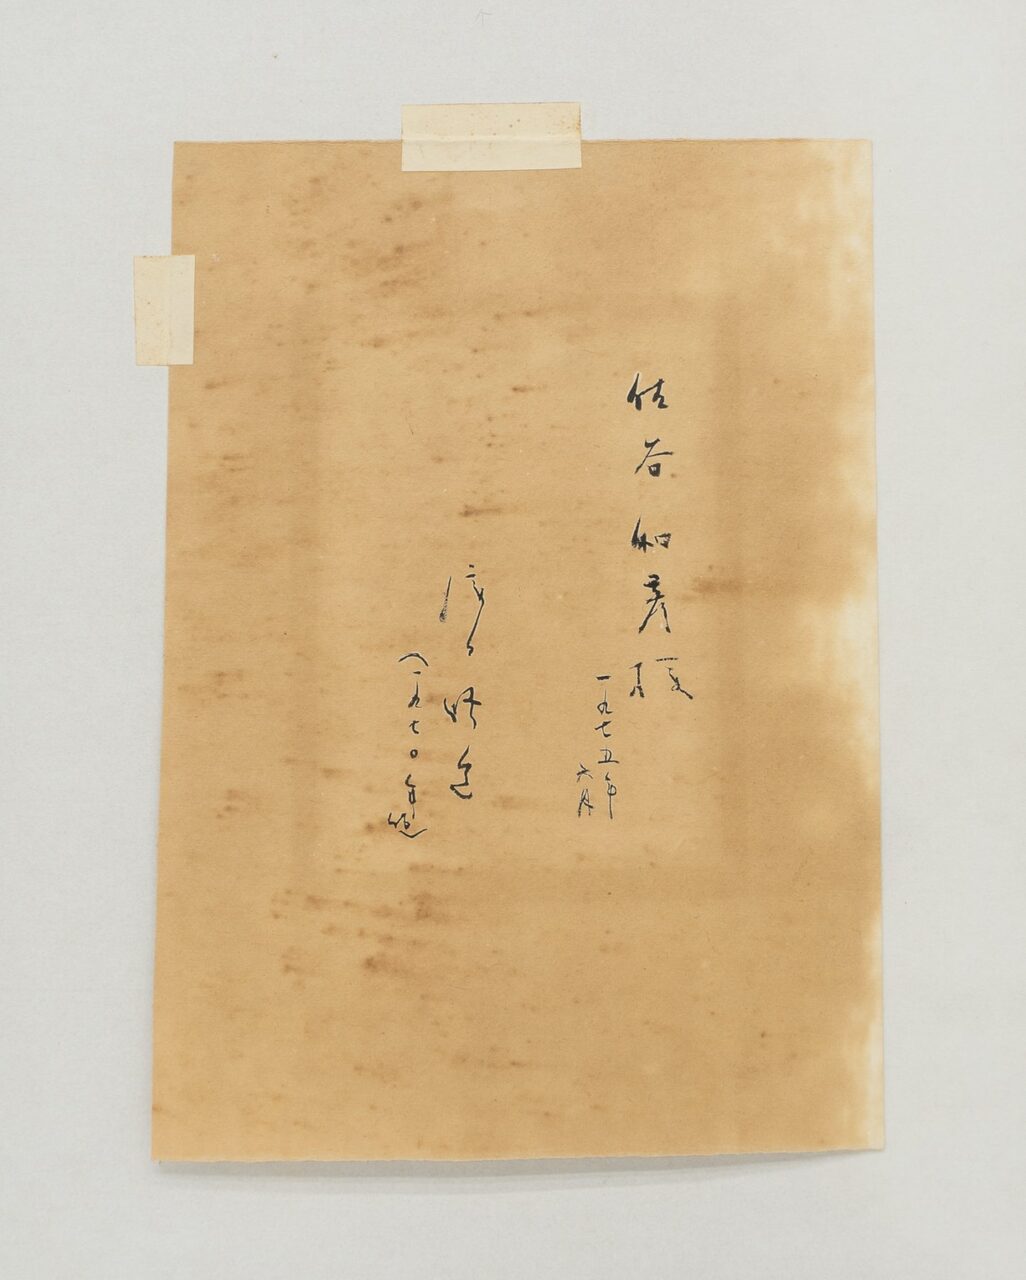 佐谷和彦様
一九七五年
六月
瀧口修造
（一九七〇年作）